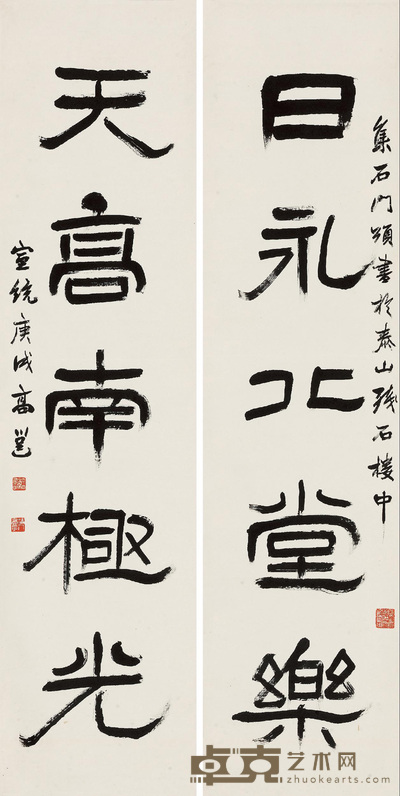 集石門頌書於泰山殘石樓中
日永北堂樂
天高南極光
宣統庚戌高邕
卓克艺术网
zhuokearts.com